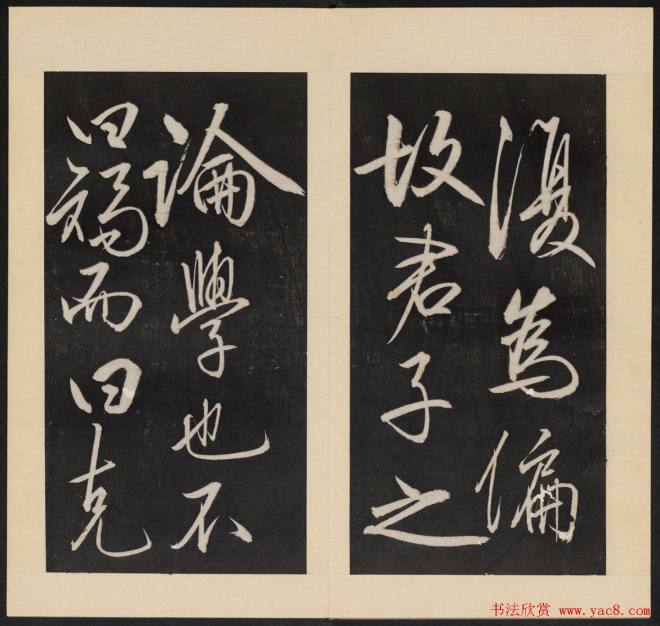 復為偏
故君子之
論學也不
曰矯而曰克
书法欣赏 www.yac8.com